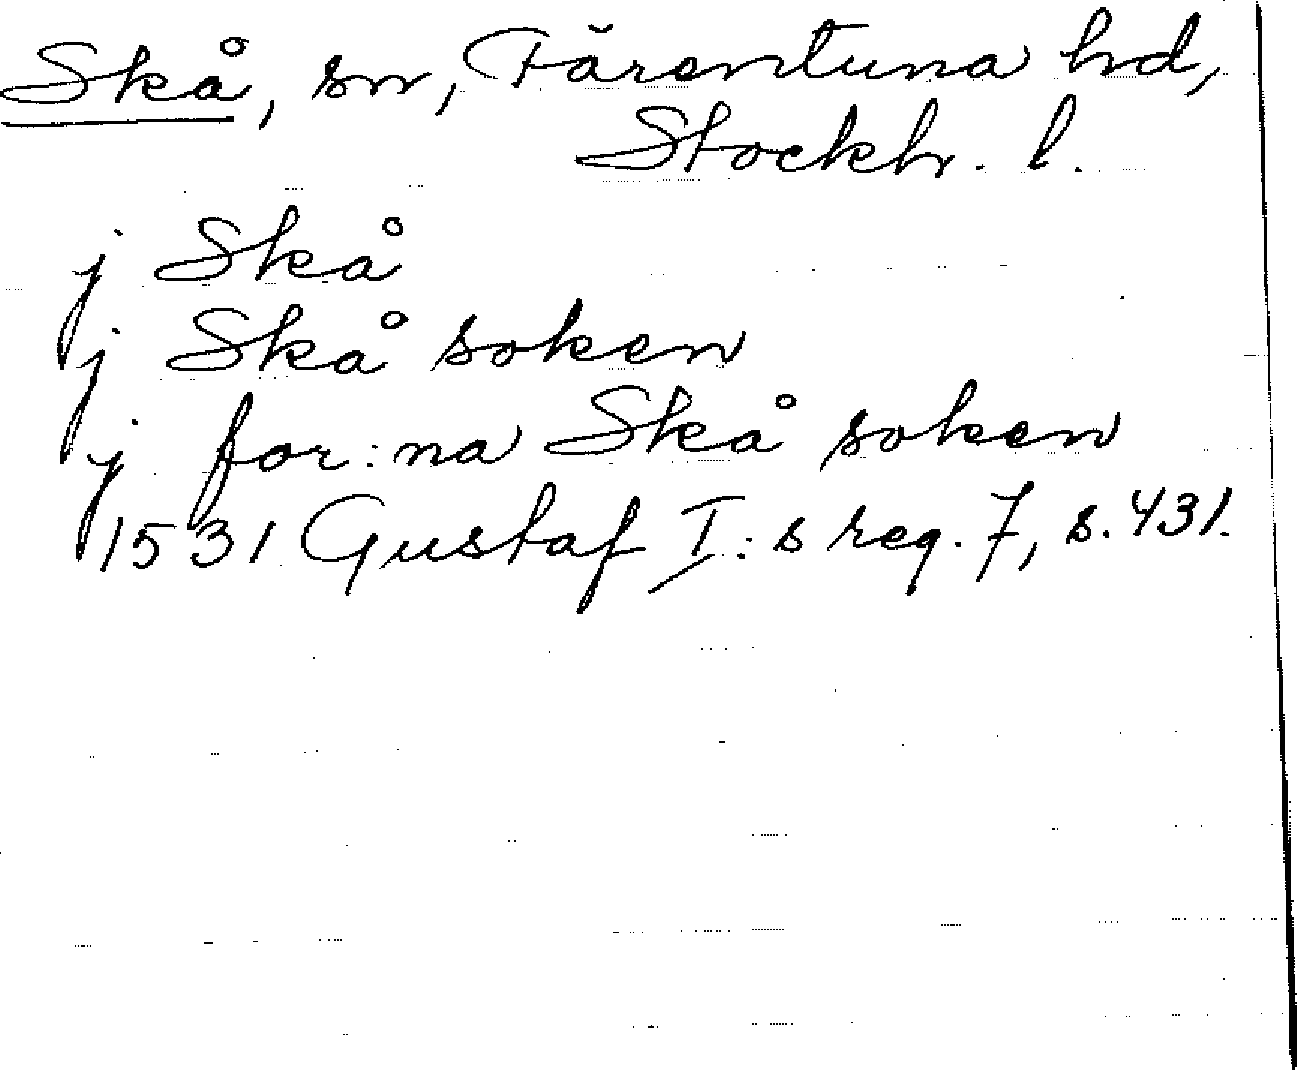 Skå, sn, Färentuna hd,
Stockh. l.
j Skå
j Skå soken
j for:na Skå soken
1531 Gustaf I:s reg. 7, s. 431.